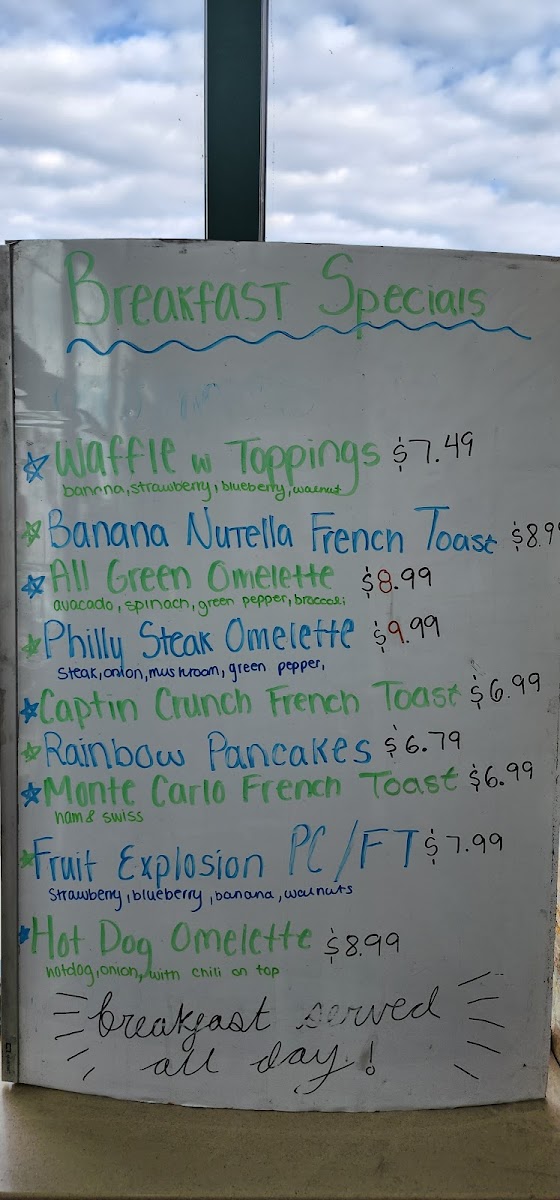 Breakfast Specials
Waffle w Toppings $7.49
bannna, strawberry, blueberry, walnut
Banana Nutella French Toast $8.9
All Green Omelette $8.99
avacado, spinach, green pepper, broccoli
Philly Steak Omelette $9.99
Steak, onion, mushroom, green pepper,
Captin Crunch French Toast $6.99
Rainbow Pancakes $6.79
Monte Carlo French Toast $6.99
ham & swiss
Fruit Explosion PC/FT $7.99
Strawberry, blueberry, banana, walnuts
Hot Dog Omelette $8.99
hotdog, onion, with chili on top
breakfast served
all day!